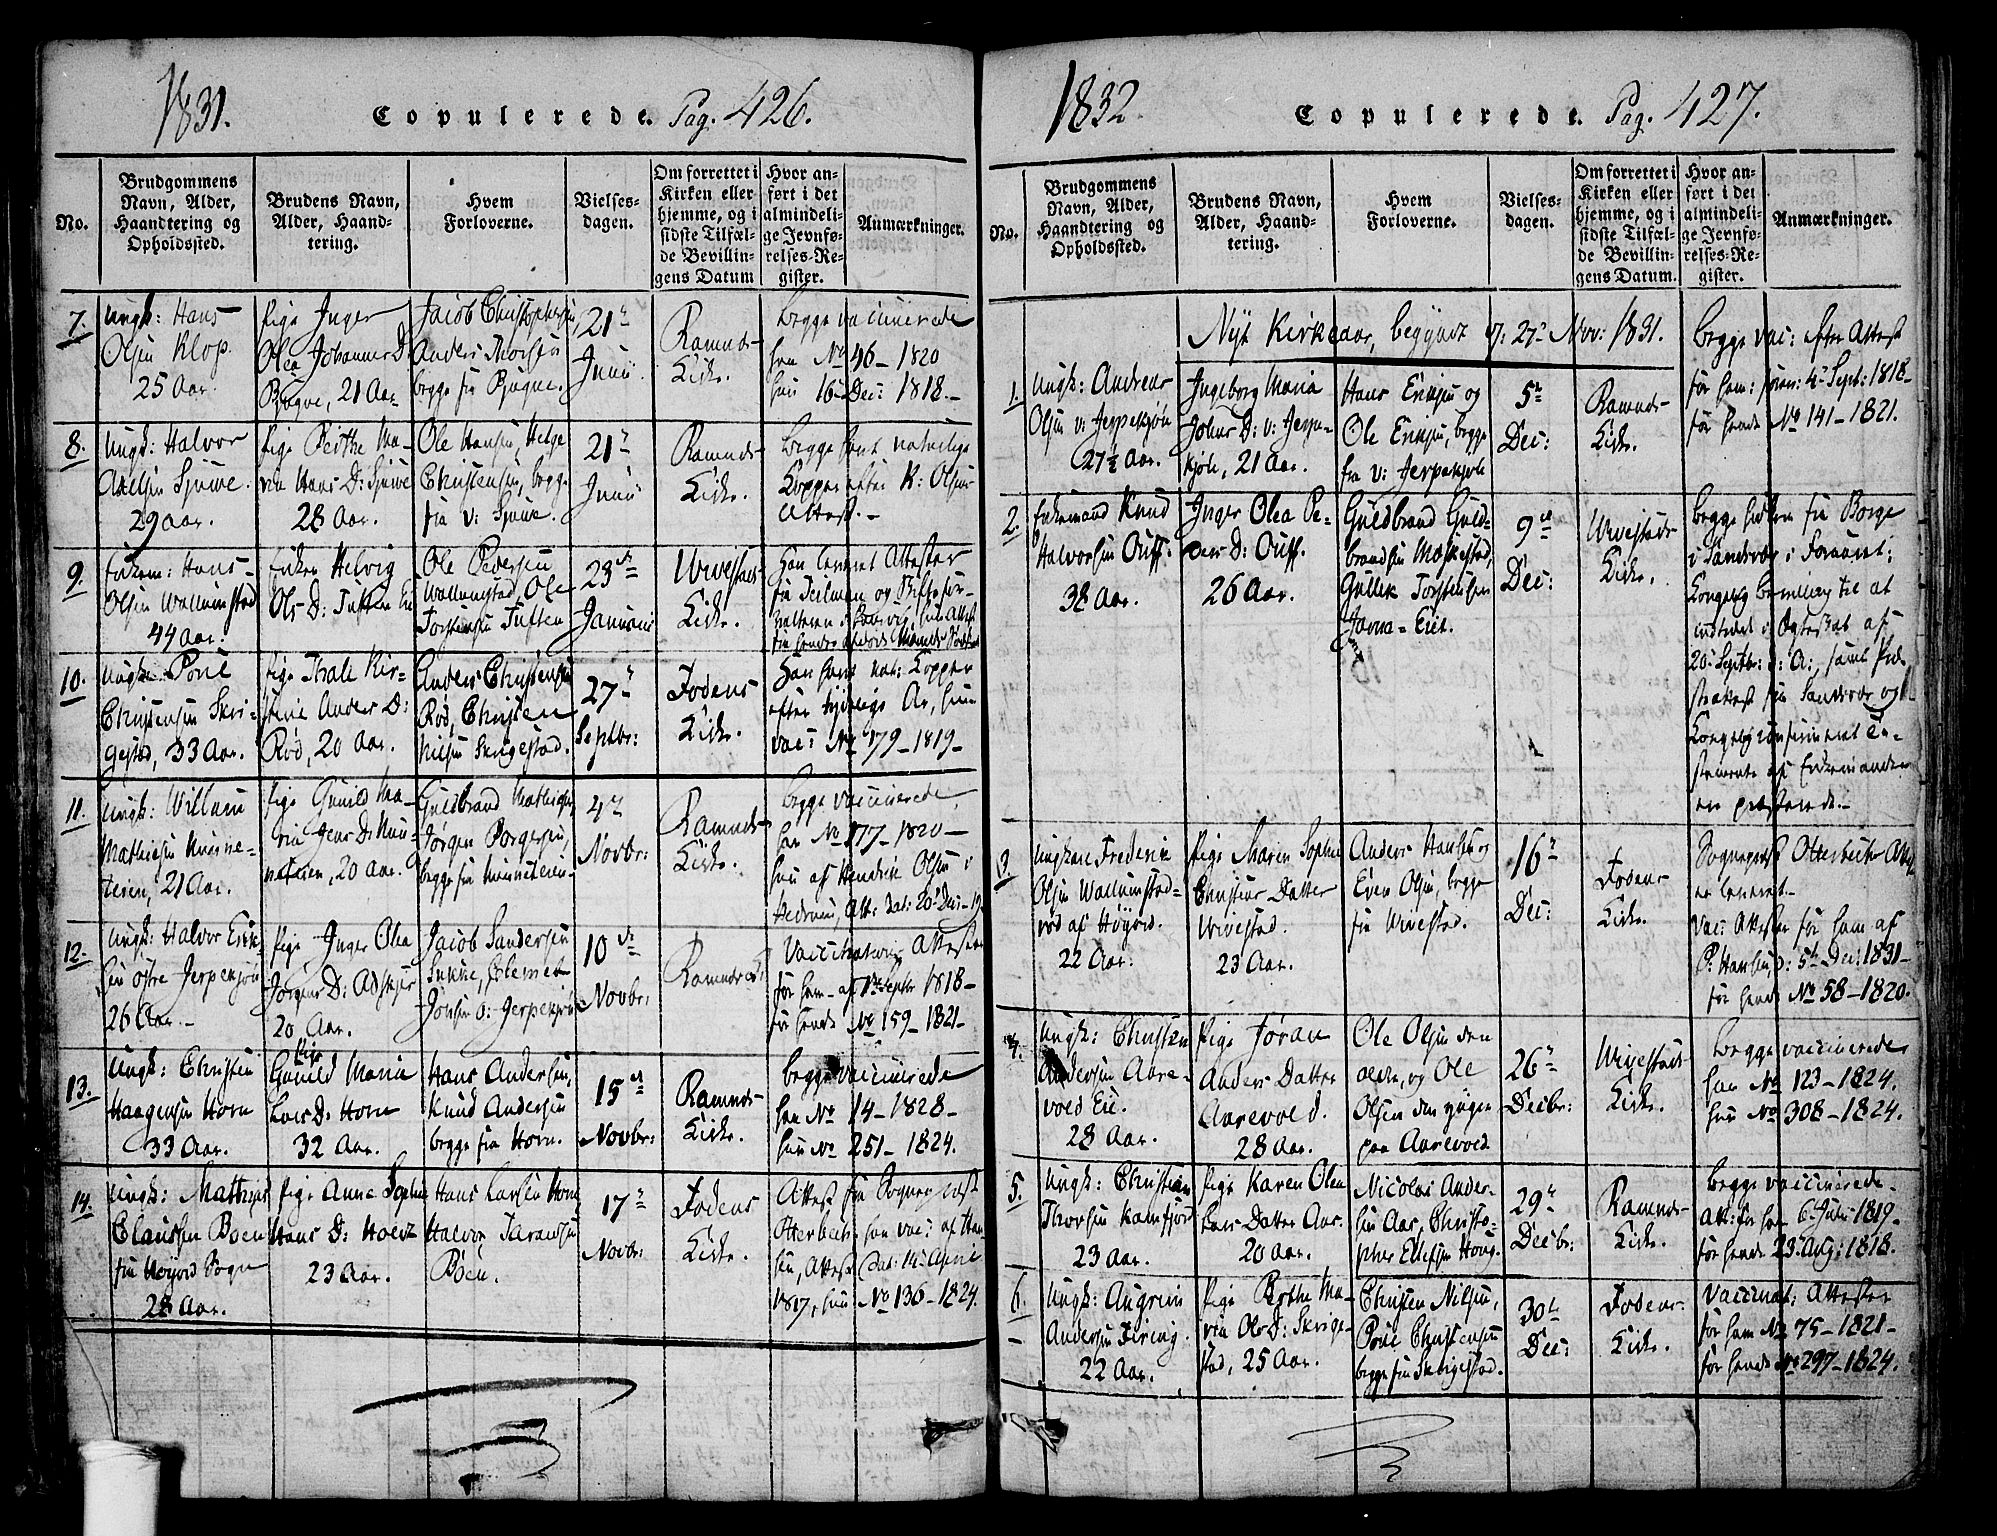 1831.
Copulerede. Pag. 426.
No.
Brudgommens
Navn, Alder,
Haandtering og
Opholdssted.
Brudens Navn,
Alder, Haand-
tering.
Hvem
Forloverne.
Vielses-
dagen.
Om forrettet i
Kirken eller
hjemme, og i
sidste Tilfæl-
de Bevillin-
gens Datum
Hvor an-
ført i det
almindeli-
ge Jevnfø-
relses-Re-
gister.
Anmærkninger.
7.
Ungk: Hans
Olsen Klop.
25 Aar.
Pige Inger
Olea Johannes D.
Bugne, 21 Aar
Jacob Christophersen,
Anders Thorsen
begge fra Bugne.
21de
Junii
Ramnes-
Kirke.
begge vaccinerede
han No 46-1820
hun 16 Dec: 1818.-
8.
Ungk: Halvor
Axelsen Sjuwe.
29 Aar.
Pige Berthe Ma-
ria Hans D: Sjuwe
28 Aar.
Ole Hansen, Helge
Christensen, begge
fra v: Sjuwe.
21
Junii
Ramnes-
Kirke.
begge havt naturlige
Kopper efter K: Olsens
Attest.-
9.
Enkem: Hans
Olsen Wallumstad
44 Aar.
Enken Helvig
Ols D: Tuften Eie
Ole Pedersen
Wallumstad, Ole
Torstensen Tuften
23de
Januarii
Wivestads-
Kirke.
Han leveret Attester
10.
Ungk: Povel
Christensen Skri-
gestad, 33 Aar.
Pige Thale Kir-
stine Anders D:
Rød, 20 Aar.
Anders Christensen
Rød, Christen
Nilsen Skrigestad.
27
Septbr:
Fodens
Kirke.
Han havt nat: Kopper
efter tydelige Ar, hun
vac: No 179-1819-
11.
Ungk: Willum
Mathiesen
21 Aar.
Pige Gunild Ma-
ria Jens D:
20 Aar.
Guldbrand Mathiesen,
Jørgen Borgersen,
begge fra
4de
Novbr:
Ramnes-
Kirke.
begge vaccinerede,
han No 177-1820-
hun af Hendrik Olsen i
Hedrum, Att: Dat: 20 Dec: 19.
12.
Ungk: Halvor Erik-
sen østre Jerpekjøn
26 Aar.-
Pige Inger Olea
Jørgens D: Adskjer
20 Aar.
Jacob Sandersen
10de
Novbr:
Ramnes
Vaccinations Attester
for ham af 1 Septbr 1818-
for hende No 159-1821-
13.
Ungk: Christen
Haagensen Horn
33 Aar.
Pige
Gunild Maria
Lars D: Horn
32 Aar.
Hans Andersen,
Knud Andersen
begge fra Horn.
15de
Novbr:
Ramnes-
Kirke.
begge vaccinerede
han No 14-1828-
hun No 251-1824.
14.
Ungk: Mathias
Claussen Boen
fra Høyjord Sogn
28 Aar.
Pige Anne Sophie
Hans D: Holt
23 Aar.
Hans Larsen Horn,
Halvor
Böen.
17
Novbr:
Fodens
Kirke.
Attest fra Sognepræst
Otterbech han vac: af Han-
sen, Attest Dat: 14 April
1807, hun No 136-1824.
1832.
Copulerede. Pag. 427.
No.
Brudgommens
Navn, Alder,
Haandtering og
Opholdssted.
Brudens Navn,
Alder, Haand-
tering.
Hvem
Forloverne.
Vielses-
dagen.
Om forrettet i
Kirken eller
hjemme, og i
sidste Tilfæl-
de Bevillin-
gens Datum.
Hvor an-
ført i det
almindeli-
ge Jevnfø-
relses-Re-
gister.
Anmærkninger.
Nyt Kirkeaar, begyndt d: 27 Nov: 1831.
1.
Ungk: Andreas
Olsen v: Jerpekjøn
27½ Aar.
Ingeborg Maria
Johns D: v: Jerpe-
kjøn, 21 Aar.
Hans Eriksen og
Ole Eriksen, begge
fra v: Jerpekjøn
5te
Dec:
Ramnes-
Kirke.
begge vac: efter Attest
for ham: 4 Sept: 1818-
for hende No 141-1821.
2.
Enkemand Knud
Halvorsen Ouff.
38 Aar.
Inger Olea Pe-
ders D: Ouff.
26 Aar.
Guldbrand Guld-
brandsen Møskestad,
Gullik Torstensen
9de
Dec:
Wivestads-
Kirke.
begge
i Sandsvær
Kongelig bevilling til at
indtræde i Ægteskab af
20 Septbr: d: A:, samt
attest fra Sandsvær og
Kongelig confirmeret Te-
stamente af Enkemanden
ere præsterede.-
3.
Ungkarl Frederik
Olsen Wallumstad-
rød af Høyjord.
22 Aar.
Pige Maren Sophie
Christens Datter
Wivestad.
23 Aar.
Anders Hansen og
Even Olsen, begge
fra Wivestad.
16
Dec:
Fodens
Kirke.
Sognepræst Otterbechs Att:
er leveret.-
Vac: Attester for ham af
P: Hansen d: 5 Dec: 1831-
for hende No 58-1820.
4.
Ungk: Christen
Andersen Aare-
vold Eie.
28 Aar.
Pige Jøran
Anders Datter
Aarevold.
28 Aar.
Ole Olsen den
ældre, og Ole
Olsen den yngre
paa Aarevold
26
Decbr:
Wivestads
Kirke.
begge vaccinerede
han No 123-1824.
hun No 308-1824.
5.
Ungk: Christian
Thorsen Kamfjord
23 Aar.
Pige Karen Olea
Lars Datter Aar.
20 Aar.
Nicolai Ander-
sen Aar, Christo-
pher Ellefsen Houg.
29
Decbr:
Ramnes-
Kirke.
begge vaccinerede.
Att: for ham 6 Juli 1819-
for hende 23 Aug: 1818.
6.
Ungk: Angrim
Andersen Firing.
22 Aar.
Pige Berthe Ma-
ria Ols D: Skrige-
stad, 25 Aar.
Christen Nilsen,
Povel Christensen
begge fra Skrigestad.
30te
Dec:
Fodens-
Kirke.
Vaccinat: Attester
for ham No 75-1821-
for hende No 297-1824.